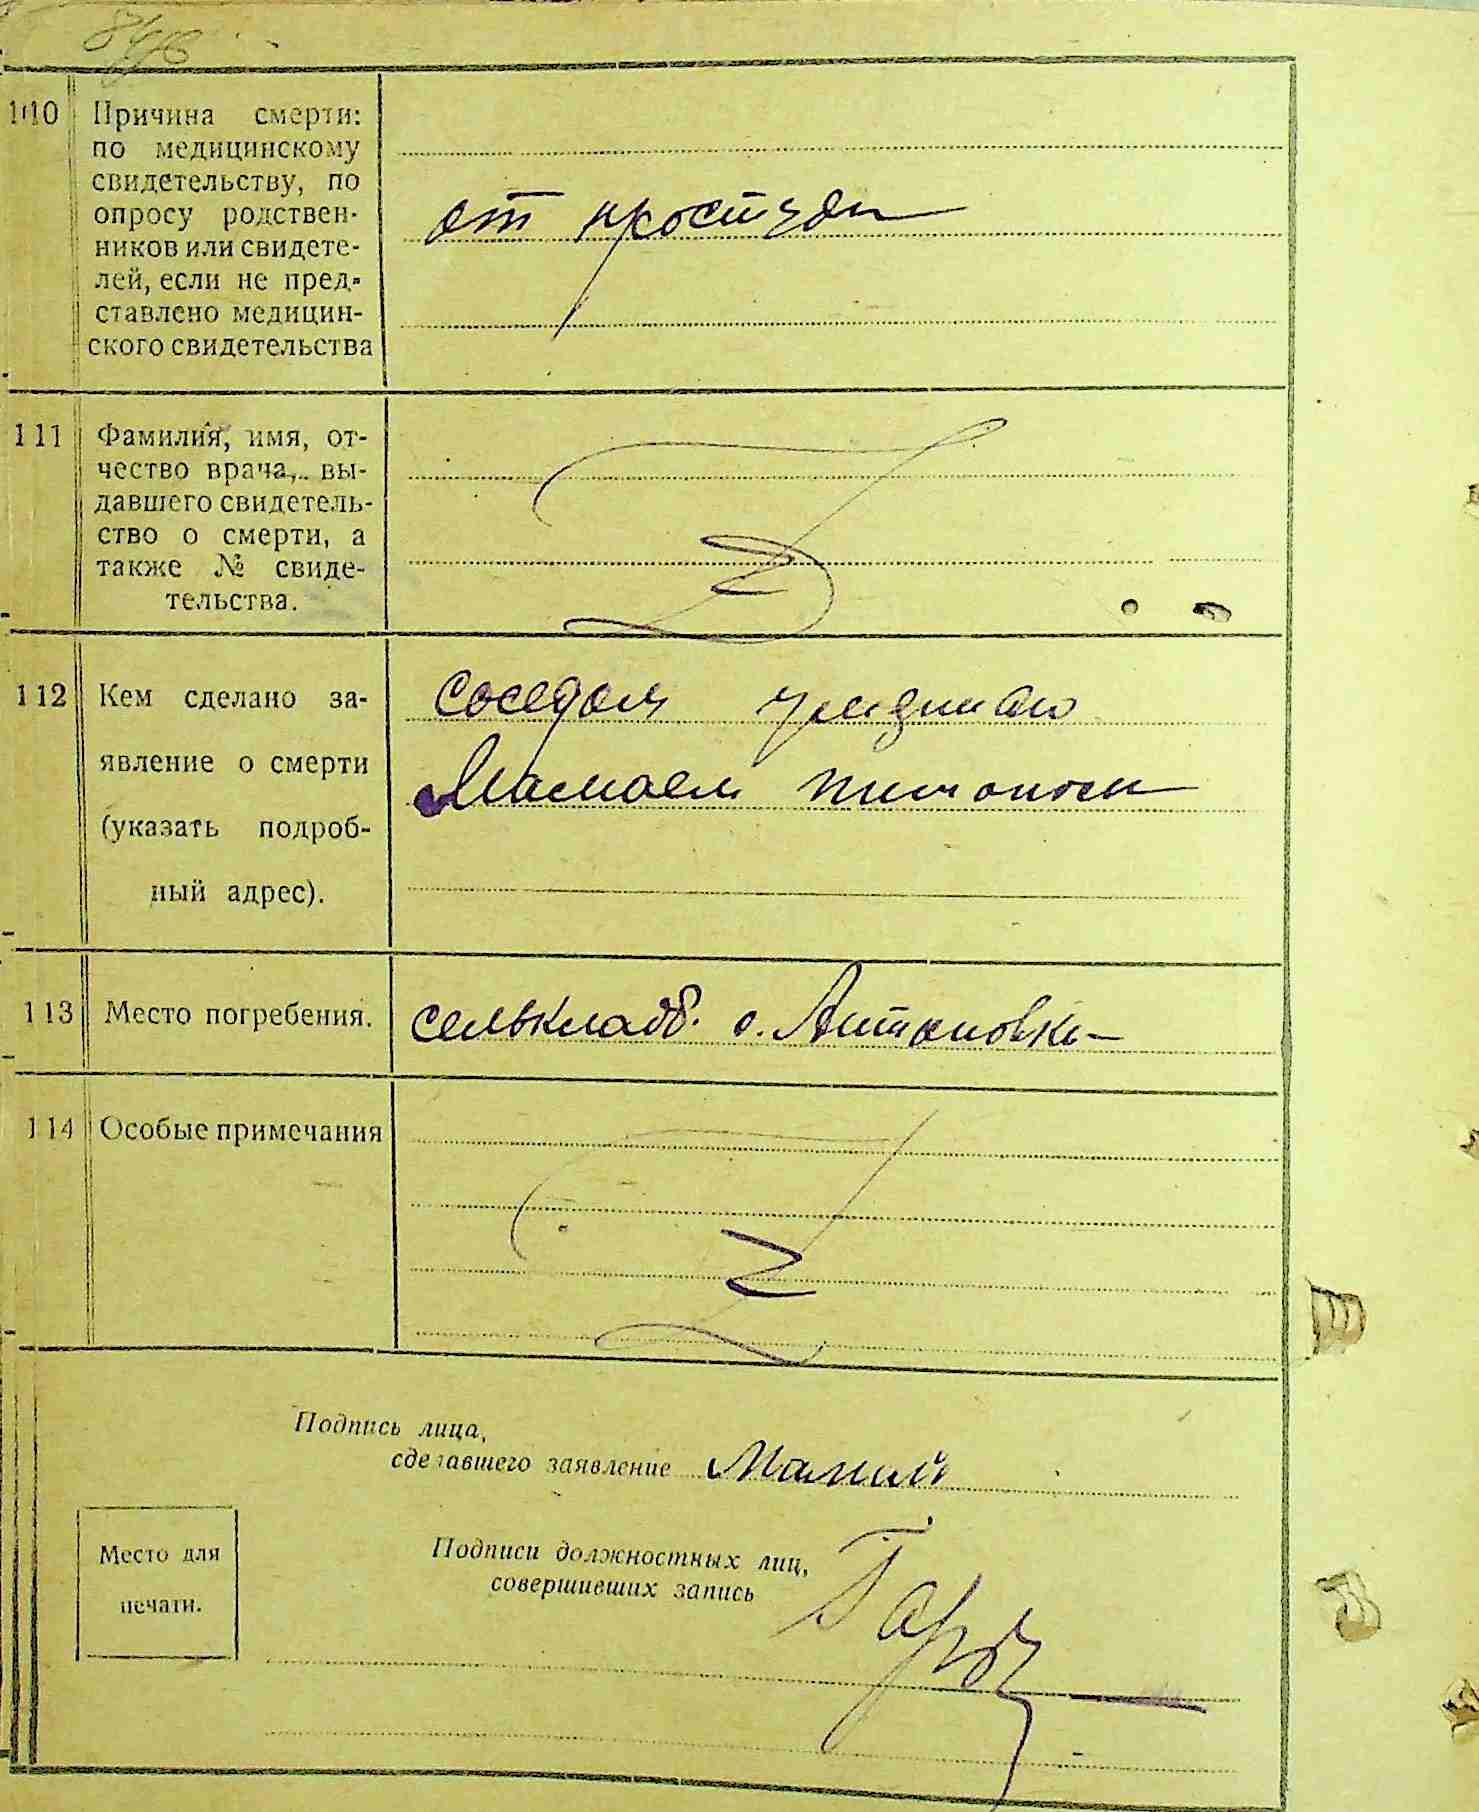 110 Причина смерти:
по медицинскому
свидетельству, по
опросу родствен-
ников или свидете-
лей, если не пред-
ставлено медицин-
ского свидетельства
от простуды
111 Фамилия, имя, от-
чество врача, вы-
давшего свидетель-
ство о смерти, а
также № свиде-
тельства.
112 Кем сделано за-
явление о смерти
(указать подроб-
ный адрес).
соседом
Мамаем
113 Место погребения.
селькладб. с. Антоновки
114 Особые примечания
Подпись лица,
сделавшего заявление Мамай
Место для
печати.
Подписи должностных лиц,
совершивших запись